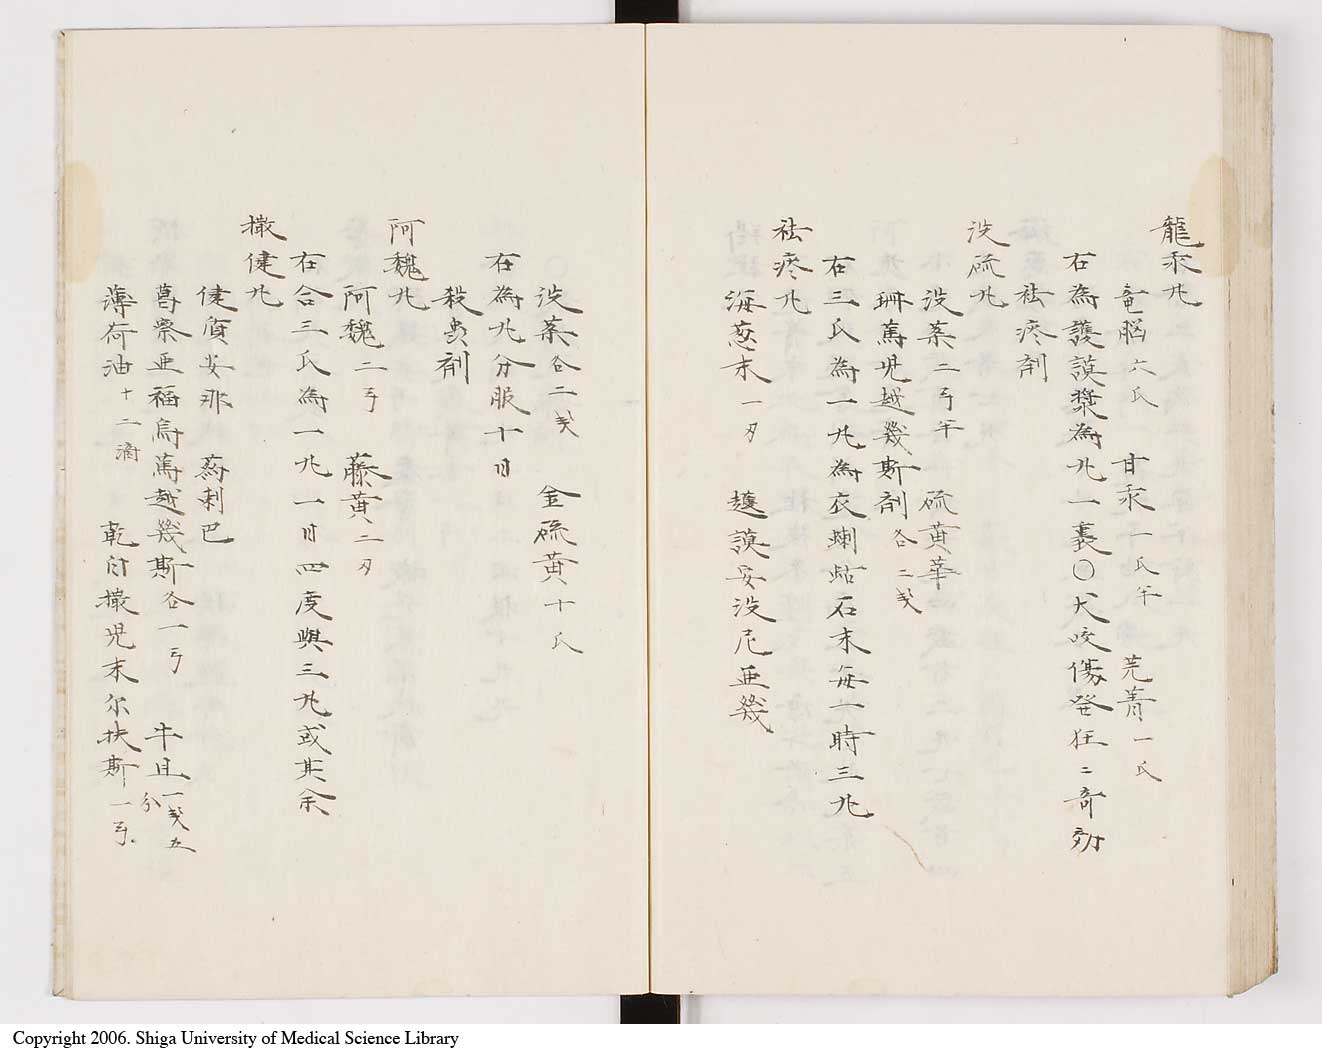 龍汞丸
竜脳六氏　甘汞一氏半　芫菁一氏
右為護謨漿為丸一裹〇犬咬傷発狂ニ奇効
祛痰剤
没硫丸
没薬二弓半　硫黄華
珊篤児越幾斯剤各二戔
右三氏為一丸為衣蝲蛄石末毎一時三丸
祛痰丸
海葱末一刄　護謨安没尼亜幾
没薬各二戔　金硫黄十氏
右為丸分服十日
殺虫剤
阿魏丸
阿魏二弓　藤黄二刄
右合三氏為一丸一日四度與三丸或其余
撒健丸
健質安那　葯剌巴
葛祭亜福烏篤越幾斯各一弓　牛胆一戔五分
薄荷油十二滴　乾阿撒児末尓扶斯一弓
Copyright 2006. Shiga University of Medical Science Library